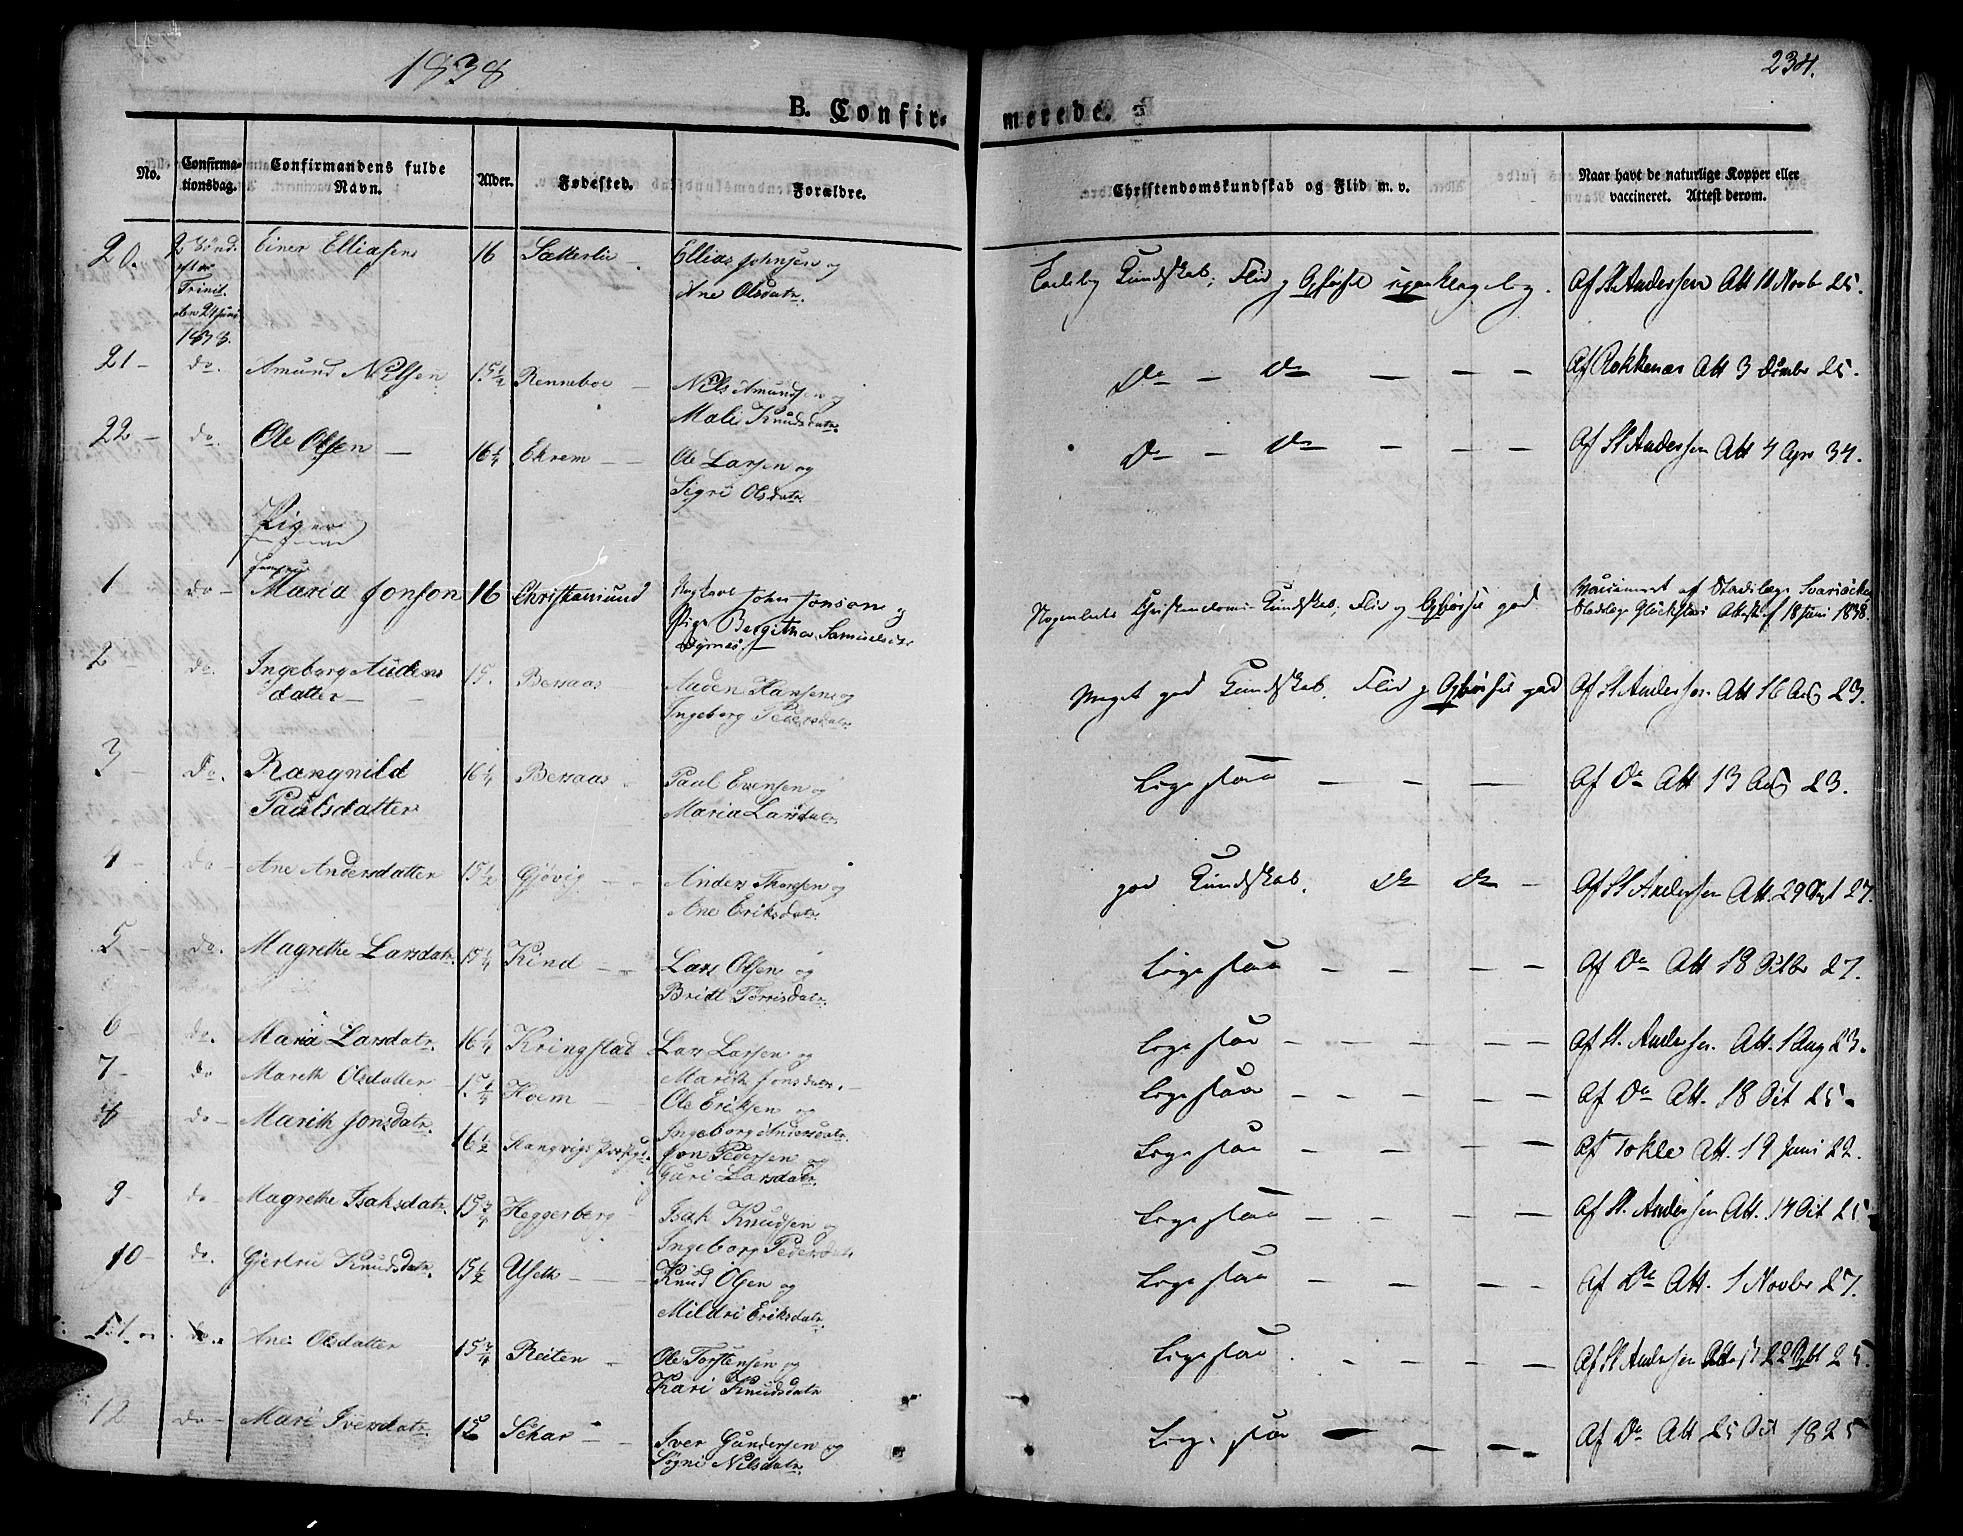 1838
234.
B. Confirmerede.
No. Confirmationsdag. Confirmandens fulde Navn. Alder. Fødested. Forældre. Christendomskundskab og Flid m. v. Naar havt de naturlige Kopper eller vaccineret. Attest derom.
20. 2 Sönd. efter Trinit. den 24 Juni 1838. Einer Elliasen 16 Sætterlie Ellias Johnsen og Ane Olsdatr. Kundskab, Flid og Opførsel Af St. Andersen Att 11 Novbr 25.
21 do. Amund Nilsen 15½ Renneboe Nils Amundsen og Mali Knudsdatr. Do Do Af Rokkenæs Att 3 Dcmbr 25.
22 do. Ole Olsen 16¼ Ekrem Ole Larsen og Sigri Olsdatr. Do Do Af St Andersen Att 4 Apr 34.
Piger
Jomfrue
1 do Maria Jonson 16 Christiansund John Jonson og Pige Bergitha Samuelsdtr Christendoms Kundskab, Flid og Opførsel god Vaccineret af Stadslæge Attest af 18 Juni 1838.
2 do. Ingeborg Audensdatter 15. Bersaas Auden Hansen og Ingeborg Pedersdatr. Meget god Kundskab. Flid og Opførsel god Af St Andersen Att 16 Aug 23.
3 Do. Rangnild Paulsdatter 16¼ Bersaas Paul Evensen og Maria Larsdatr Ligesaa Af Do Att 13 Aug 23.
4 do Ane Andersdatter 15½ Gjøvig Anders Thorsen og Ane Eriksdatr. god Kundskab. Do Do Af St Andersen Att. 29 Sept 27.
5 do. Magrethe Larsdatr. 15¼ Kind Lars Olsen og Bridt Torrisdatr. Ligesaa Af Do Att 18 27.
6 do. Maria Larsdatr. 16¼ Kringstad Lars Larsen og Marith Jonsdatr. Ligesaa Af St. Andersen. Att. 1 Aug 23.
7 do Mareth Olsdatter 15¼ Hoem Ole Eriksen og Ingeborg Andersdatr. Ligesaa Af Do Att. 18 25.
8 do Marith Jonsdatr. 16½ Jon Pedersen og Guri Larsdatr. Ligesaa Af Tokle Att. 19 Juni 22.
9 do Magrethe Isaksdatr. 15¾ Heggerberg Isak Knudsen og Ingeborg Pedersdatr Ligesaa Af St. Andersen Att. 14 25
10 do. Gjertru Knudsdatr. 15½ Useth Knud Olsen og Mildri Eriksdatr. Ligesaa Af Do Att. 1 Novbr 27.
do. Ane Olsdatter 15¾ Reiten Ole Torstensen og Kari Knudsdatr Ligesaa Af St Andersen 22 25.
12 do Mari Iversdatr. 15 Schar Iver Gundersen og Sogni Nilsdatr. Ligesaa Af Do Att 25 1825